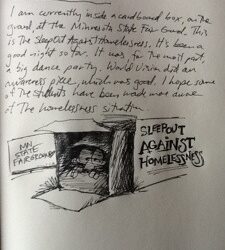 I am currently inside a cardboard box, on the
ground, at the Minnesota State Fair Ground. This
is the Sleepout Against Homelessness. It's been a
good night so far. It was, for the most part,
a big dance party. World Vision did an
awareness piece, which was good. I hope some
of the students have been made more aware
of the homelessness situation.
SLEEPOUT
AGAINST
HOMELESSNESS
MN
STATE
FAIRGROUND